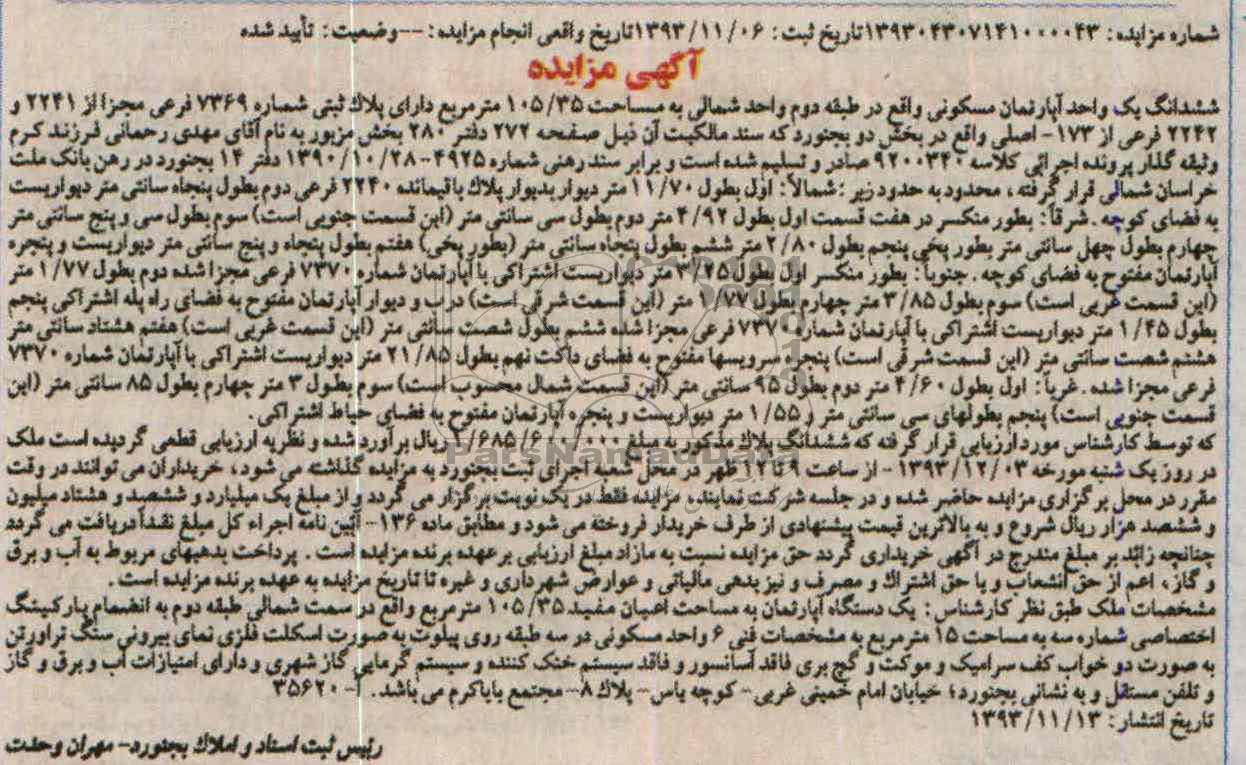 شماره مزایده: ۱۳۹۳۰۴۳۰۷۱۴۱۰۰۰۰۴۳تاریخ ثبت: ۱۳۹۳/۱۱/۰۶تاریخ واقعی انجام مزایده: --وضعیت: تأیید شده
آگهی مزایده
ششدانگ یک واحد آپارتمان مسکونی واقع در طبقه دوم واحد شمالی به مساحت ۱۰۵/۳۵ مترمربع دارای پلاک ثبتی شماره ۷۳۶۹ فرعی مجزا از ۲۲۴۱ و
۲۲۴۲ فرعی از ۱۷۳- اصلی واقع در بخش دو بجنورد که سند مالکیت آن ذیل صفحه ۲۷۲ دفتر ۲۸۰ بخش مزبور به نام آقای مهدی رحمانی فرزند کرم
وثیقه گذار پرونده اجرائی کلاسه ۹۲۰۰۳۴۰ صادر و تسلیم شده است و برابر سند رهنی شماره ۴۹۲۵-۱۳۹۰/۱۰/۲۸ دفتر ۱۴ بجنورد در رهن بانک ملت
خراسان شمالی قرار گرفته، محدود به حدود زیر: شمالاً: اول بطول ۱۱/۷۰ متر دیوار بدیوار پلاک باقیمانده ۲۲۴۰ فرعی دوم بطول پنجاه سانتی متر دیواریست
به فضای کوچه. شرقاً: بطور منکسر در هفت قسمت اول بطول ۴/۹۲ متر دوم بطول سی سانتی متر (این قسمت جنوبی است) سوم بطول سی و پنج سانتی متر
چهارم بطول چهل سانتی متر بطور پخی پنجم بطول ۲/۸۰ متر ششم بطول پنجاه سانتی متر (بطور پخی) هفتم بطول پنجاه و پنج سانتی متر دیواریست و پنجره
آپارتمان مفتوح به فضای کوچه. جنوباً: بطور منکسر اول بطول ۳/۲۵ متر دیواریست اشتراکی با آپارتمان شماره ۷۳۷۰ فرعی مجزا شده دوم بطول ۱/۷۷ متر
(این قسمت غربی است) سوم بطول ۳/۸۵ متر چهارم بطول ۱/۷۷ متر (این قسمت شرقی است) درب و دیوار آپارتمان مفتوح به فضای راه پله اشتراکی پنجم
بطول ۱/۴۵ متر دیواریست اشتراکی با آپارتمان شماره ۷۳۷۰ فرعی مجزا شده ششم بطول شصت سانتی متر (این قسمت غربی است) هفتم هشتاد سانتی متر
هشتم شصت سانتی متر (این قسمت شرقی است) پنجره سرویسها مفتوح به فضای داکت نهم بطول ۲۱/۸۵ متر دیواریست اشتراکی با آپارتمان شماره ۷۳۷۰
فرعی مجزا شده. غرباً: اول بطول ۴/۶۰ متر دوم بطول ۹۵ سانتی متر (این قسمت شمال محسوب است) سوم بطول ۳ متر چهارم بطول ۸۵ سانتی متر (این
قسمت جنوبی است) پنجم بطولهای سی سانتی متر و ۱/۵۵ متر دیواریست و پنجره آپارتمان مفتوح به فضای حیاط اشتراکی.
که توسط کارشناس مورد ارزیابی قرار گرفته که ششدانگ پلاک مذکور به مبلغ ۱/۶۸۵/۶۰۰/۰۰۰ ریال برآورد شده و نظریه ارزیابی قطعی گردیده است ملک
در روز یک شنبه مورخه ۱۳۹۳/۱۲/۰۳ - از ساعت ۹ تا ۱۲ ظهر در محل شعبه اجرای ثبت بجنورد به مزایده گذاشته می شود، خریداران می توانند در وقت
مقرر در محل برگزاری مزایده حاضر شده و در جلسه شرکت نمایند، مزایده فقط در یک نوبت برگزار می گردد و از مبلغ یک میلیارد و ششصد و هشتاد میلیون
و ششصد هزار ریال شروع و به بالاترین قیمت پیشنهادی از طرف خریدار فروخته می شود و مطابق ماده ۱۳۶- آئین نامه اجراء کل مبلغ نقداً دریافت می گردد
چنانچه زائد بر مبلغ مندرج در آگهی خریداری گردد حق مزایده نسبت به مازاد مبلغ ارزیابی بر عهده برنده مزایده است. پرداخت بدهیهای مربوط به آب و برق
و گاز، اعم از حق انشعاب و یا حق اشتراک و مصرف و نیز بدهی مالیاتی و عوارض شهرداری و غیره تا تاریخ مزایده به عهده برنده مزایده است.
مشخصات ملک طبق نظر کارشناس: یک دستگاه آپارتمان به مساحت اعیان مفید ۱۰۵/۳۵ مترمربع واقع در سمت شمالی طبقه دوم به انضمام پارکینگ
اختصاصی شماره سه به مساحت ۱۵ مترمربع به مشخصات فنی ۶ واحد مسکونی در سه طبقه روی پیلوت به صورت اسکلت فلزی نمای بیرونی سنگ تراورتن
به صورت دو خواب کف سرامیک و موکت و گچ بری فاقد آسانسور و فاقد سیستم خنک کننده و سیستم گرمایی گاز شهری و دارای امتیازات آب و برق و گاز
و تلفن مستقل و به نشانی بجنورد؛ خیابان امام خمینی غربی- کوچه یاس- پلاک ۸- مجتمع باباکرم می باشد. آ-۳۵۶۲۰
تاریخ انتشار: ۱۳۹۳/۱۱/۱۳
رئیس ثبت اسناد و املاک بجنورد- مهران وحدت
ParsNamadData